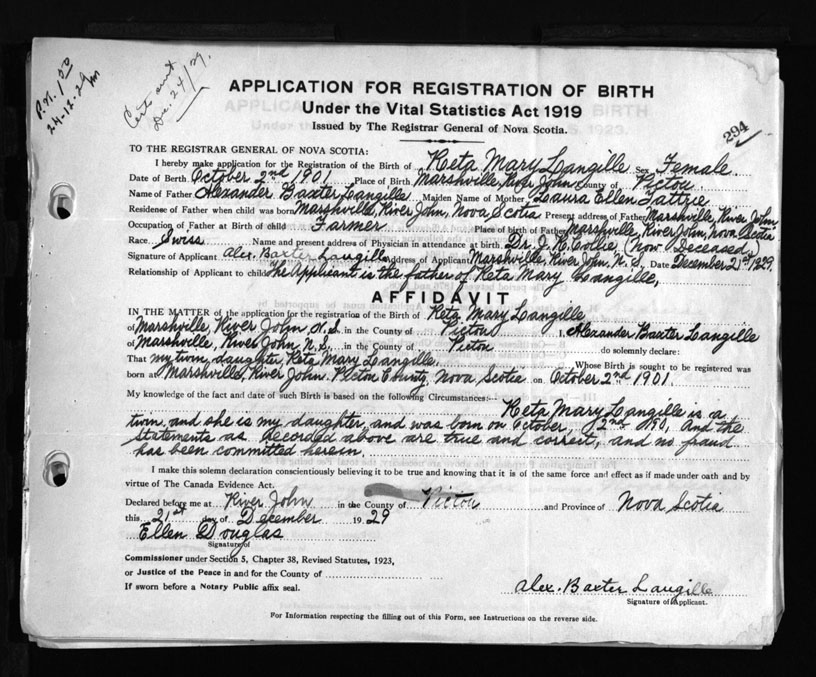 P.N. 1.00
24-12-29
Cert sent
Dec. 24/29.
APPLICATION FOR REGISTRATION OF BIRTH
Under the Vital Statistics Act 1919
Issued by The Registrar General of Nova Scotia.
294
TO THE REGISTRAR GENERAL OF NOVA SCOTIA:
I hereby make application for the Registration of the Birth of Reta Mary Langille Sex Female
Date of Birth October 2nd 1901 Place of Birth Marshville, River John County of Pictou
Name of Father Alexander Baxter Langille Maiden Name of Mother Laura Ellen Tattrie
Residence of Father when child was born Marshville, River John, Nova Scotia Present address of Father Marshville, River John
Occupation of Father at Birth of child Farmer Place of birth of Father Marshville, River John, Nova Scotia
Race Swiss Name and present address of Physician in attendance at birth Dr. J. R. Collie (now Deceased)
Signature of Applicant Alex. Baxter Langille Address of Applicant Marshville, River John, N. S. Date December 21st 1929.
Relationship of Applicant to child The Applicant is the father of Reta Mary Langille,
AFFIDAVIT
IN THE MATTER of the application for the registration of the Birth of Reta Mary Langille
of Marshville, River John N. S. in the County of Pictou I, Alexander Baxter Langille
of Marshville, River John N. S. in the County of Pictou do solemnly declare:
That my twin, daughter, Reta Mary Langille. Whose Birth is sought to be registered was
born at Marshville, River John. Pictou County, Nova Scotia on October 2nd 1901.
My knowledge of the fact and date of such Birth is based on the following Circumstances:--
Reta Mary Langille is a
twin, and she is my daughter, and was born on October, 2nd 1901, and the
statements as recorded above are true and correct, and no fraud
has been committed herein.
I make this solemn declaration conscientiously believing it to be true and knowing that it is of the same force and effect as if made under oath and by
virtue of The Canada Evidence Act.
Declared before me at River John in the County of Pictou and Province of Nova Scotia
this 21st day of December 1929
Ellen Douglas
Signature of
Commissioner under Section 5, Chapter 38, Revised Statutes, 1923,
or Justice of the Peace in and for the County of
If sworn before a Notary Public affix seal.
Alex. Baxter Langille
Signature of Applicant.
For Information respecting the filling out of this Form, see Instructions on the reverse side.